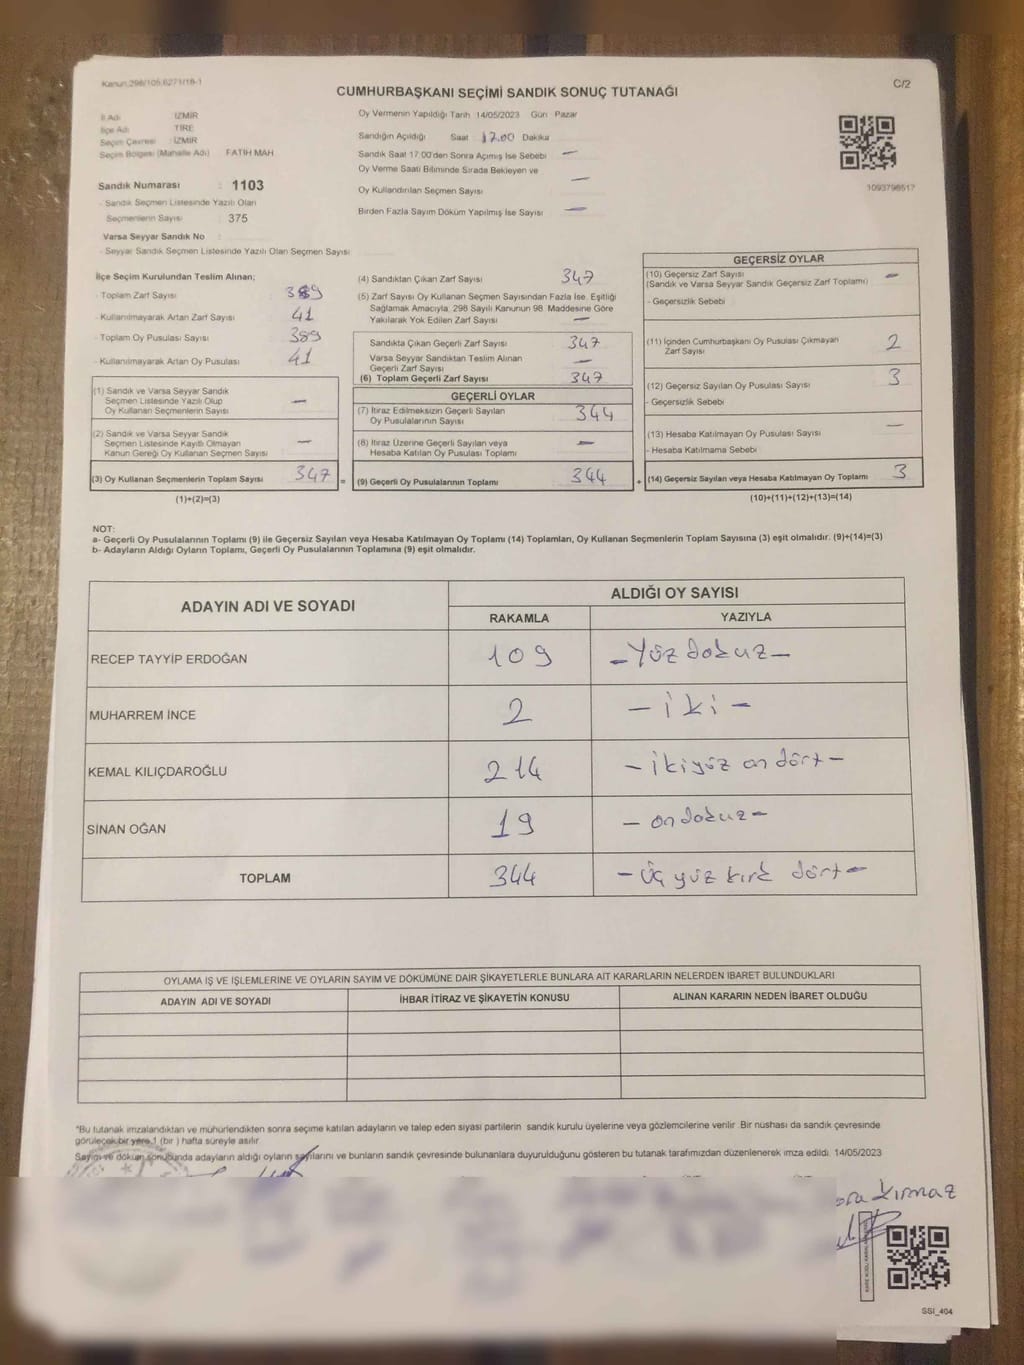 Kanun,298/105,6271/18-1
C/2
CUMHURBAŞKANI SEÇİMİ SANDIK SONUÇ TUTANAĞI
İl Adı İZMİR
İlçe Adı TİRE
Seçim Çevresi : İZMİR
Seçim Bölgesi (Mahalle Adı) FATİH MAH
Sandık Numarası : 1103
- Sandık Seçmen Listesinde Yazılı Olan
Seçmenlerin Sayısı : 375
Varsa Seyyar Sandık No :
- Seyyar Sandık Seçmen Listesinde Yazılı Olan Seçmen Sayısı
Oy Vermenin Yapıldığı Tarih 14/05/2023 Gün Pazar
Sandığın Açıldığı Saat 17.00 Dakika
Sandık Saat 17:00'den Sonra Açımış İse Sebebi —
Oy Verme Saati Bitiminde Sırada Bekleyen ve
Oy Kullandırılan Seçmen Sayısı —
Birden Fazla Sayım Döküm Yapılmış İse Sayısı —
1093798517
İlçe Seçim Kurulundan Teslim Alınan;
- Toplam Zarf Sayısı 389
- Kullanılmayarak Artan Zarf Sayısı 41
- Toplam Oy Pusulası Sayısı 389
- Kullanılmayarak Artan Oy Pusulası 41
(1) Sandık ve Varsa Seyyar Sandık
Seçmen Listesinde Yazılı Olup
Oy Kullanan Seçmenlerin Sayısı —
(2) Sandık ve Varsa Seyyar Sandık
Seçmen Listesinde Kayıtlı Olmayan
Kanun Gereği Oy Kullanan Seçmen Sayısı —
(3) Oy Kullanan Seçmenlerin Toplam Sayısı 347 =
(1)+(2)=(3)
(4) Sandıktan Çıkan Zarf Sayısı 347
(5) Zarf Sayısı Oy Kullanan Seçmen Sayısından Fazla İse, Eşitliği
Sağlamak Amacıyla, 298 Sayılı Kanunun 98. Maddesine Göre
Yakılarak Yok Edilen Zarf Sayısı —
Sandıkta Çıkan Geçerli Zarf Sayısı 347
Varsa Seyyar Sandıktan Teslim Alınan
Geçerli Zarf Sayısı —
(6) Toplam Geçerli Zarf Sayısı 347
GEÇERLİ OYLAR
(7) İtiraz Edilmeksizin Geçerli Sayılan
Oy Pusulalarının Sayısı 344
(8) İtiraz Üzerine Geçerli Sayılan veya
Hesaba Katılan Oy Pusulası Toplamı —
(9) Geçerli Oy Pusulalarının Toplamı 344 +
GEÇERSİZ OYLAR
(10) Geçersiz Zarf Sayısı —
(Sandık ve Varsa Seyyar Sandık Geçersiz Zarf Toplamı)
- Geçersizlik Sebebi
(11) İçinden Cumhurbaşkanı Oy Pusulası Çıkmayan
Zarf Sayısı 2
(12) Geçersiz Sayılan Oy Pusulası Sayısı 3
- Geçersizlik Sebebi
(13) Hesaba Katılmayan Oy Pusulası Sayısı —
- Hesaba Katılmama Sebebi
(14) Geçersiz Sayılan veya Hesaba Katılmayan Oy Toplamı 3
(10)+(11)+(12)+(13)=(14)
NOT:
a- Geçerli Oy Pusulalarının Toplamı (9) ile Geçersiz Sayılan veya Hesaba Katılmayan Oy Toplamı (14) Toplamları, Oy Kullanan Seçmenlerin Toplam Sayısına (3) eşit olmalıdır. (9)+(14)=(3)
b- Adayların Aldığı Oyların Toplamı, Geçerli Oy Pusulalarının Toplamına (9) eşit olmalıdır.
ADAYIN ADI VE SOYADI ALDIĞI OY SAYISI
RAKAMLA YAZIYLA
RECEP TAYYİP ERDOĞAN 109 - Yüz dokuz -
MUHARREM İNCE 2 - iki -
KEMAL KILIÇDAROĞLU 214 - ikiyüz on dört -
SİNAN OĞAN 19 - on dokuz -
TOPLAM 344 - Üç yüz kırk dört -
OYLAMA İŞ VE İŞLEMLERİNE VE OYLARIN SAYIM VE DÖKÜMÜNE DAİR ŞİKAYETLERLE BUNLARA AİT KARARLARIN NELERDEN İBARET BULUNDUKLARI
ADAYIN ADI VE SOYADI İHBAR İTİRAZ VE ŞİKAYETİN KONUSU ALINAN KARARIN NEDEN İBARET OLDUĞU
"Bu tutanak imzalandıktan ve mühürlendikten sonra seçime katılan adayların ve talep eden siyasi partilerin sandık kurulu üyelerine veya gözlemcilerine verilir. Bir nüshası da sandık çevresinde
görülecek bir yere 1 (bir ) hafta süreyle asılır.
Sayım ve döküm sonucunda adayların aldığı oyların sayılarını ve bunların sandık çevresinde bulunanlara duyurulduğunu gösteren bu tutanak tarafımızdan düzenlenerek imza edildi. 14/05/2023
SSI_404